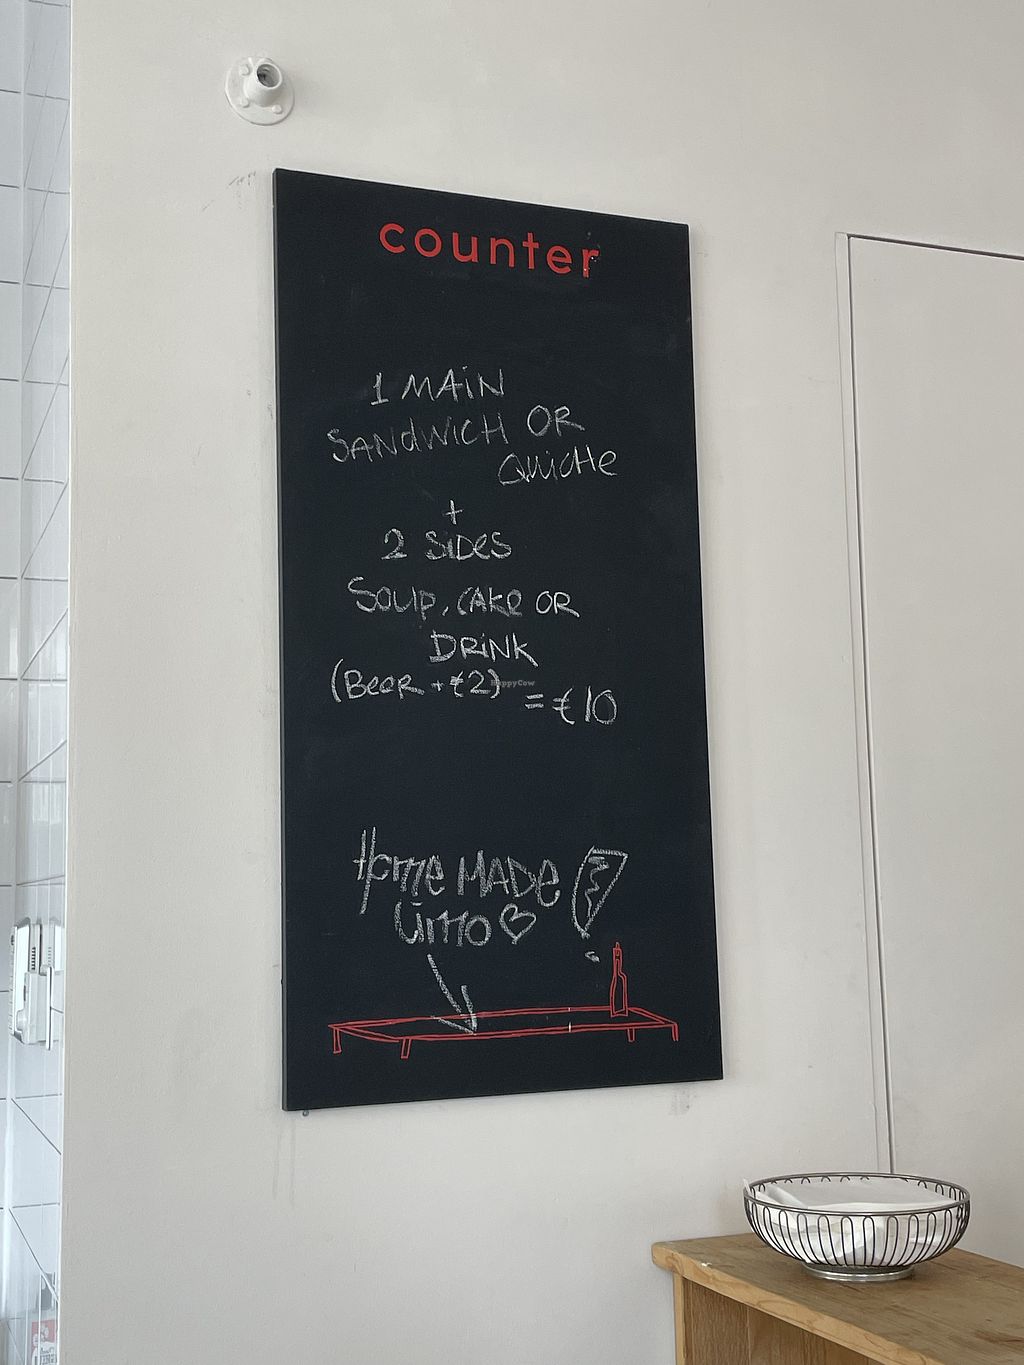 counter
1 MAiN
SANdWiCH OR
QuicHe
+
2 SiDes
Soup, CAKe OR
DRiNK
(BeeR + €2)
= €10
HappyCow
Home MADe
Limo